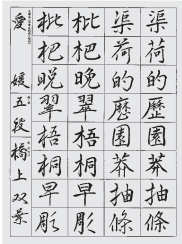 渠荷的歷園莽抽條
渠荷的歷園莽抽條
枇杷晚翠梧桐早彫
枇杷晚翠梧桐早彫
愛媛五段橋上双